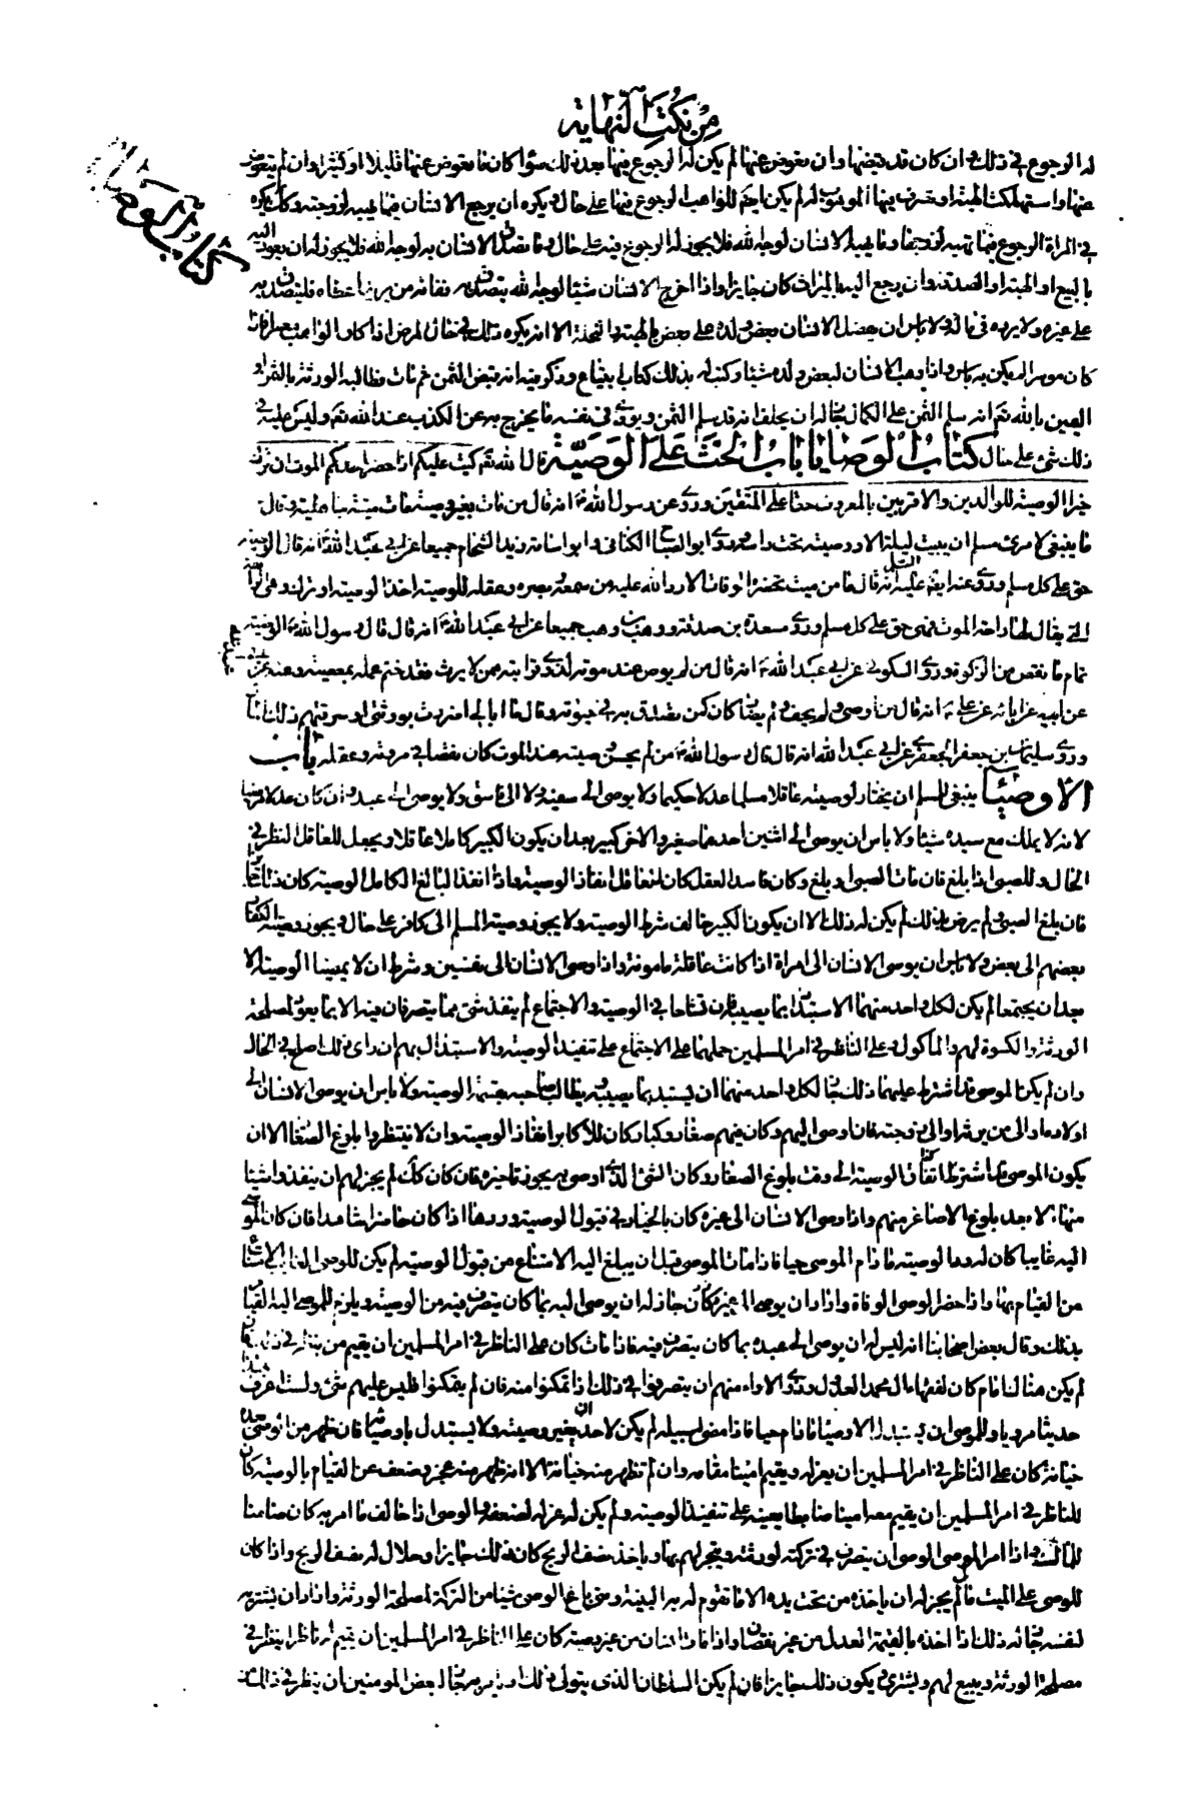 من نكت النهاية
كتاب الوصايا
له الرجوع في ذلك وان كان قد قبضها وان تعوض عنها لم يكن له الرجوع فيها بعد ذلك سواء كان ما تعوض عنها قليلا او كثيرا وان لم يتعوض
عنها واستهلكت الهبة او تصرف فيها الموهوب له لم يكن ايضا للواهب الرجوع فيها على حال ويكره ان يرجع الانسان فيما يهبه لزوجته وكذلك يكره
في المراة الرجوع فيما تهبه لزوجها وما يهبه الانسان لوجه الله فلا يجوز له الرجوع فيه على حال وما تصدق الانسان به لوجه الله فلا يجوز له ان يعود اليه
بالبيع او الهبة او الصدقة وان رجع اليه بالميراث كان جايزا واذا اخرج الانسان شيئا لوجه الله يتصدق به ففاته من يريد اعطاه فليتصدق به
على غيره ولا يرده في ماله ولا باس ان يفضل الانسان بعض ولده على بعض بالهبة والنحلة الا انه يكره ذلك في حال المرض اذا كان الواهب معسرا فاذا
كان موسرا لم يكن به باس واذا وهب الانسان لبعض ولده شيئا وكتب له بذلك كتاب ابتياع وذكر فيه انه قبض الثمن ثم مات فطالبه الورثة بالثمن او
اليمين بالله تعم انه سلم الثمن على الكمال جاز له ان يحلف انه قد سلم الثمن ويورى في نفسه ما يخرج به عن الكذب عند الله تعم وليس عليه في
ذلك شيء على حال كتاب الوصايا باب الحث على الوصية قال الله تعم كتب عليكم اذا حضر احدكم الموت ان ترك
خيرا الوصية للوالدين والاقربين بالمعروف حقا على المتقين وروى عن رسول الله انه قال من مات بغير وصية مات ميتة جاهلية وقال
ما ينبغى لامرئ مسلم ان يبيت ليلة الا ووصيته تحت راسه وروى ابو الصباح الكنانى وابو اسامة زيد الشحام جميعا عن ابي عبد الله انه قال الوصية
حق على كل مسلم وروى عنه ايضا عليه السلم انه قال ما من ميت تحضره الوفاة الا رد الله عليه من سمعه وبصره وعقله للوصية اخذ الوصية او ترك وهي الراحة
التي يقال لها راحة الموت فهى حق على كل مسلم وروى مسعدة بن صدقة ووهب بن وهب جميعا عن ابي عبد الله انه قال قال رسول الله الوصية
تمام ما نقص من الزكوة وروى السكوني عن ابي عبد الله انه قال من لم يوص عند موته لذوى قرابته ممن لا يرث فقد ختم عمله بمعصية وعنه عن
عن ابيه عن ابائه عن علي انه قال من اوصى ولم يحف ولم يضار كان كمن تصدق به في حيوته وقال ما ابالى اضررت بورثتى او سرقتهم ذلك المال
وروى سليمان بن جعفر الجعفرى عن ابي عبد الله انه قال قال رسول الله من لم يحسن وصيته عند الموت كان نقصا في مروته وعقله باب
الاوصياء ينبغى للمسلم ان يختار لوصيته عاقلا مسلما عدلا حكيما ولا يوصى الى سفيه ولا الى فاسق ولا يوصى الى عبد وان كان عدلا مرضيا
لانه لا يملك مع سيده شيئا ولا باس ان يوصى الى اثنين احدهما صغير والاخر كبير بعد ان يكون الكبير كاملا عاقلا ويجعل للعاقل النظر في
الحال وللصبى اذا بلغ فان مات الصبى او بلغ وكان فاسد العقل كان للعاقل انفاذ الوصية واذا انفذ البالغ الكامل الوصية كان ذلك جايزا
فان بلغ الصبى ولم يرض بذلك لم يكن له ذلك الا ان يكون الكبير خالف شرط الوصية ولا يجوز وصية المسلم الى كافر على حال ويجوز وصية الكفار
بعضهم الى بعض ولا باس ان يوصى الانسان الى امراة اذا كانت عاقلة مامونة واذا اوصى الانسان الى نفسين وشرط ان لا يمضيا الوصية الا
بعد ان يجتمعا لم يكن لكل واحد منهما الاستبداد بما يصيبه فان تشاحا في الوصية والاجتماع لم ينفذ شئ مما يتصرفان فيه الا بما يعود لمصلحة
الورثة والكسوة لهم والماكول وعلى الناظر في امر المسلمين حملهما على الاجتماع على تنفيذ الوصية والاستبدال بهم ان راى ذلك اصلح في الحال
وان لم يكن الموصى قد اشترط عليهما ذلك جاز لكل واحد منهما ان يستبد بما يصيبه ويطالب صاحبه بقسمة الوصية ولا باس ان يوصى الانسان الى
اولاده او الى من يرثه او الى زوجته فان اوصى اليهم وكان فيهم صغار وكبار كان للاكابر انفاذ الوصية وان لا ينتظروا بلوغ الصغار الا ان
يكون الموصى قد اشترط انفاذ الوصية الى وقت بلوغ الصغار وكان الشئ الذى اوصى به يجوز تاخيره فان كان كذلك لم يجز لهم ان ينفذوا شيئا
منها الا بعد بلوغ الاصاغر منهم واذا اوصى الانسان الى غيره كان بالخيار في قبول الوصية وردها اذا كان حاضرا شاهدا فان كان الموصى
اليه غايبا كان له رد الوصية ما دام الموصى حيا فاذا مات الموصى قبل ان يبلغ اليه الامتناع من قبول الوصية لم يكن للوصى الغايب الامتناع
من القيام بها واذا حضر الوصى الوفاة واراد ان يوصى الى غيره جاز له ان يوصى اليه بما كان يتصرف فيه من الوصية ويلزم الموصى اليه القيام
بذلك وقال بعض اصحابنا انه ليس له ان يوصى الى غيره بما كان يتصرف فيه فاذا مات كان على الناظر في امر المسلمين ان يقيم من ينظر في ذلك فان
لم يكن هناك امام كان لفقهاء ال محمد العدول وذوى الاراء منهم ان يتصرفوا في ذلك اذا تمكنوا منه فان لم يتمكنوا فليس عليهم شئ ولست اعرف بهذا
حديثا مرويا وللموصى ان يستبدل الاوصياء ما دام حيا فاذا مضى لسبيله لم يكن لاحد ان يغير وصيته ولا يستبدل باوصيائه فان ظهر من الوصى بعده
خيانة كان على الناظر في امر المسلمين ان يعزله ويقيم امينا مقامه وان لم تظهر منه خيانة الا انه ظهر منه عجز وضعف عن القيام بالوصية كان
للناظر في امر المسلمين ان يقيم معه امينا ضابطا يعينه على تنفيذ الوصية ولم يكن له عزله لضعفه والوصى اذا خالف ما امر به كان ضامنا
للمال واذا امر الموصى الوصى ان يتصرف في تركته لورثته ويتجر لهم بها وياخذ نصف الربح كان ذلك جايزا وحلال له نصف الربح واذا كان
للوصى على الميت مال لم يجز له ان ياخذه من تحت يده الا ما تقوم له به البينة ومتى باع الوصى شيئا من التركة لمصلحة الورثة واراد ان يشتريه
لنفسه جاز له ذلك اذا اخذه بالقيمة العدل من غير نقصان واذا مات انسان من غير وصية كان على الناظر في امر المسلمين ان يقيم له ناظرا ينظر في
مصلحة الورثة ويبيع لهم ويشترى ويكون ذلك جايزا فان لم يكن السلطان الذى يتولى ذلك او يامر به جاز لبعض المومنين ان ينظر في ذلك